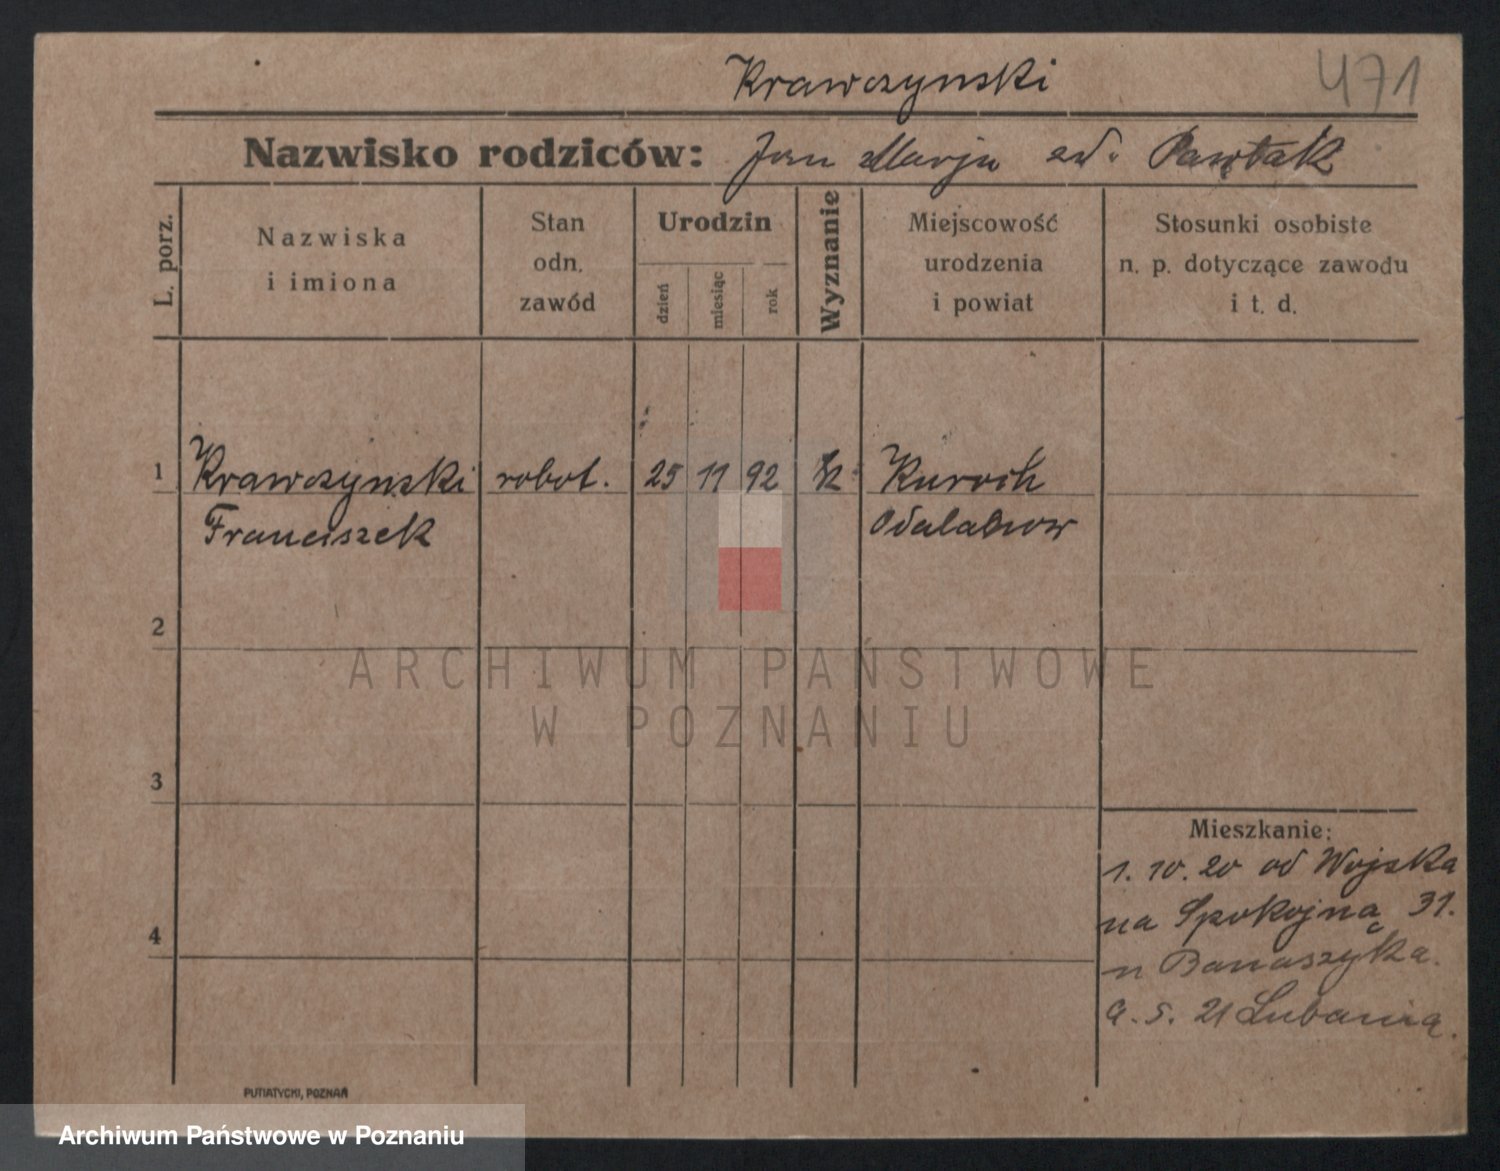 Krawczynski
471
Nazwisko rodziców: Jan Marja ad. Pawlak
L. porz.
Nazwiska
i imiona
Stan
odn.
zawód
Urodzin
dzień
miesiąc
rok
Wyznanie
Miejscowość
urodzenia
i powiat
Stosunki osobiste
n. p. dotyczące zawodu
i t. d.
1 Krawczynski robot. 25 11 92 k Kuroch
Franciszek Odalanow
2
3
4
ARCHIWUM PAŃSTWOWE
W POZNANIU
Mieszkanie:
1. 10. 20 od Wojska
na Spokojną 31.
u Banaszyka.
5. 21 Lubania.
PUTIATYCKI, POZNAŃ
Archiwum Państwowe w Poznaniu